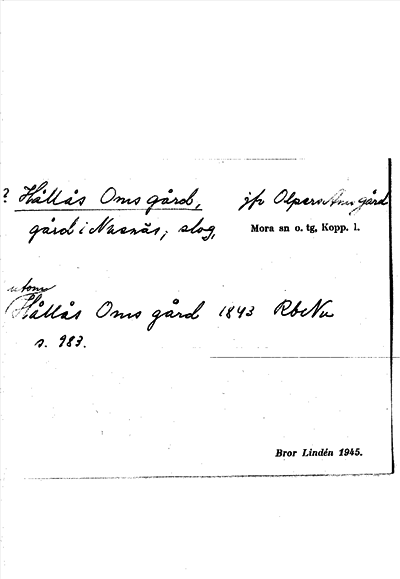 ? Hållås Oms gård, jfr Olpers Oms gård
gård i Nusnäs; slog, Mora sn o. tg, Kopp. l.
utom
Hållås Oms gård 1843 RbNu
s. 983.
Bror Lindén 1945.